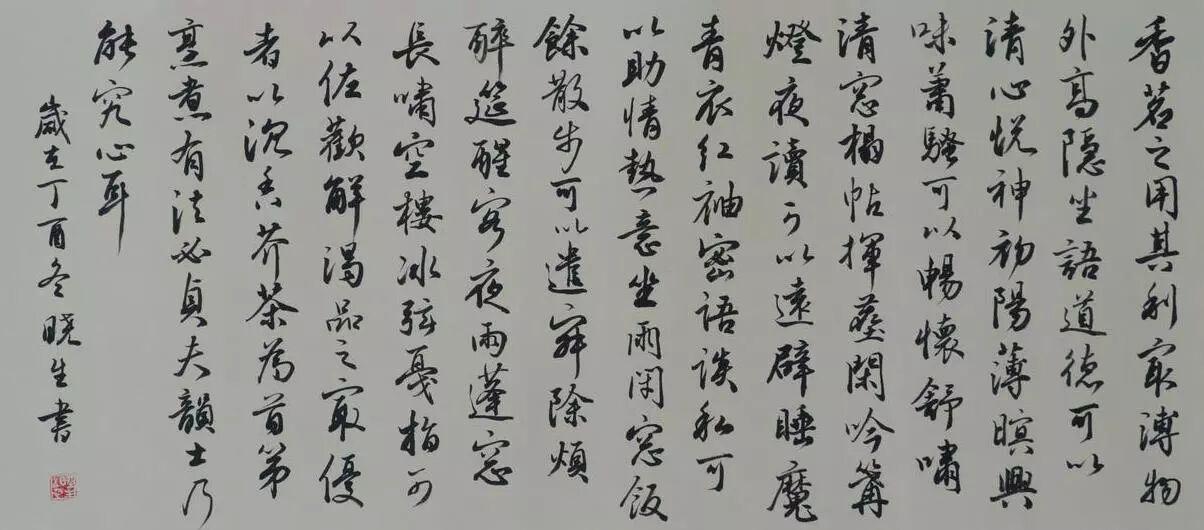 香茗之用其利最溥物
外高隱坐語道德可以
清心悅神初陽薄暝興
味蕭騷可以暢懷舒嘯
清窓榻帖揮麈閑吟篝
燈夜讀可以遠辟睡魔
青衣紅袖密語談私可
以助情熱意坐雨閑窓飯
餘散步可以遣寂除煩
醉筵醒客夜雨蓬窓
長嘯空樓冰弦戛指可
以佐歡解渴品之最優
者以沉香芥茶為首第
烹煮有法必貞夫韻士乃
能究心耳
歲在丁酉冬曉生書